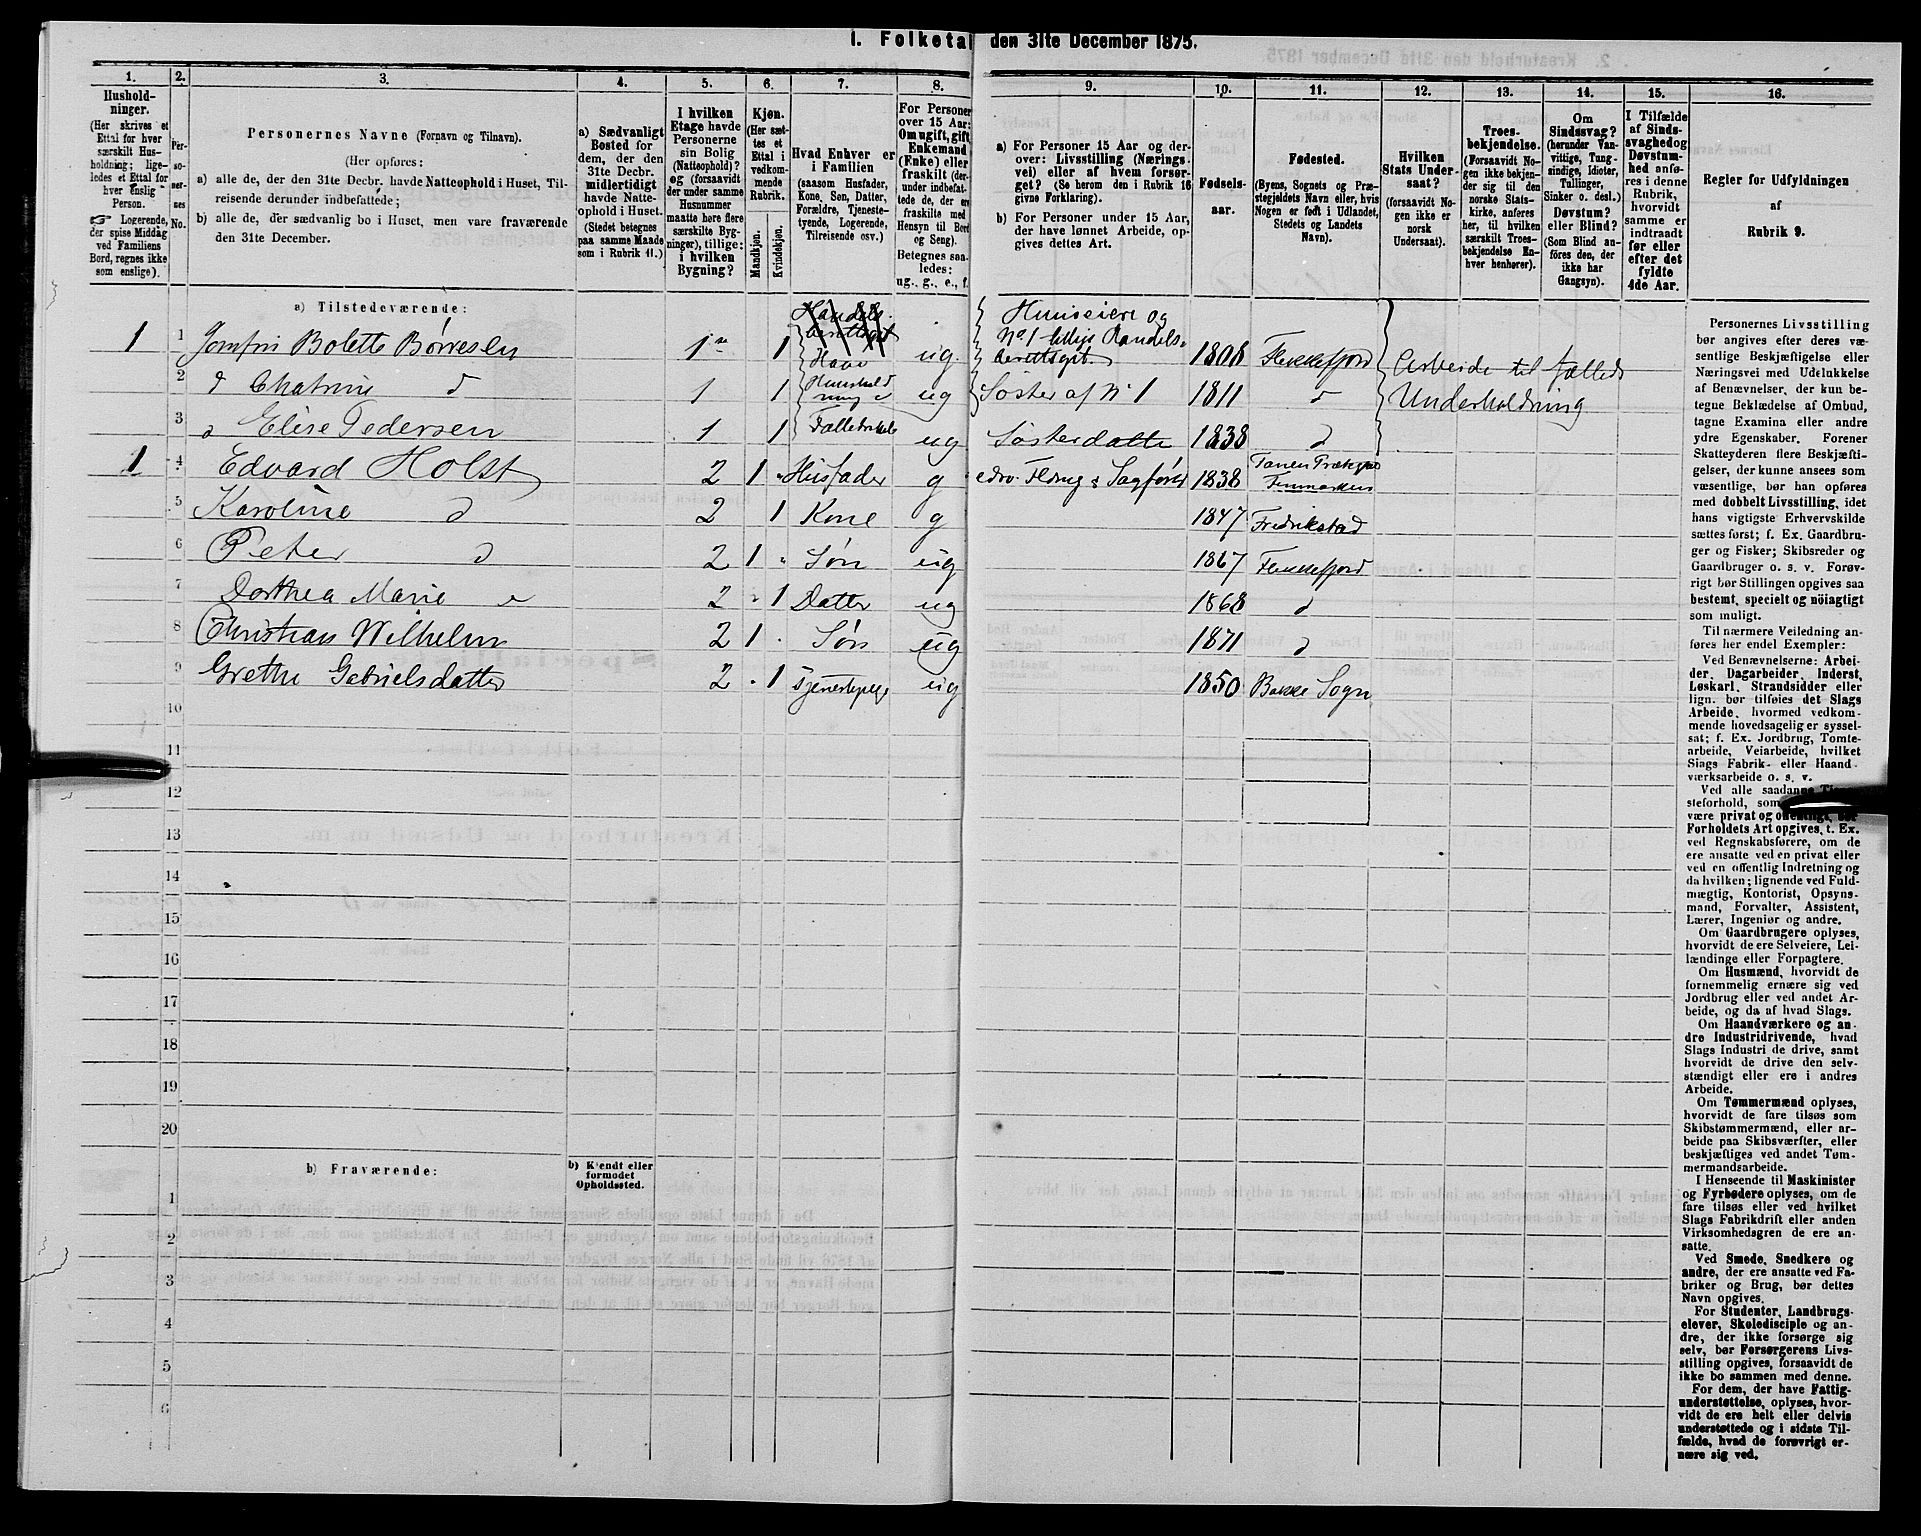 1. Folketal den 31te December 1875.
1. 2. 3. 4. 5. 6. 7. 8. 9. 10. 11. 12. 13. 14. 15. 16.
Husholdninger.
(Her skrives et
Ettal for hver
særskilt Husholdning; ligeledes et Ettal for
hver enslig
Person.
☞ Logerende,
der spise Middag
ved Familiens
Bord, regnes ikke
som enslige).
Personernes
No.
Personernes Navne (Fornavn og Tilnavn).
(Her opføres:
a) alle de, der den 31te Decbr. havde Natteophold i Huset, Tilreisende derunder indbefattede;
b) alle de, der sædvanlig bo i Huset, men vare fraværende
den 31te December.
a) Sædvanligt
Bosted for
dem, der den
31te Decbr.
midlertidigt
havde Natteophold i Huset.
(Stedet betegnes
paa samme Maade
som i Rubrik 11.)
I hvilken
Etage havde
Personerne
sin Bolig
(Natteophold)?
og (forsaavidt
der under samme
Husnummer
maatte høre flere
særskilte Bygninger), tillige:
i hvilken
Bygning?
Kjøn.
(Her sættes et
Ettal i
vedkommende
Rubrik.
Mandkjøn.
Kvindekjøn.
Hvad Enhver er
i Familien
(saasom Husfader,
Kone, Søn, Datter,
Forældre, Tjenestetyende, Logerende,
Tilreisende osv.)
For Personer
over 15 Aar:
Om ugift, gift,
Enkemand
(Enke) eller
fraskilt (derunder indbefattede de, der ere
fraskilte med
Hensyn til Bord
og Seng).
Betegnes saaledes:
ug., g., e., f.
a) For Personer 15 Aar og derover: Livsstilling (Næringsvei) eller af hvem forsørget? (Se herom den i Rubrik 16
givne Forklaring).
b) For Personer under 15 Aar,
der have lønnet Arbeide, opgives dettes Art.
Fødselsaar.
Fødested.
(Byens, Sognets og Præstegjeldets Navn eller, hvis
Nogen er født i Udlandet,
Stedets og Landets
Navn).
Hvilken
Stats Undersaat?
(forsaavidt Nogen ikke er
norsk
Undersaat).
Troesbekjendelse.
(Forsaavidt Nogen ikke bekjender sig til den
norske Statskirke, anføres
her, til hvilken
særskilt Troesbekjendelse Enhver henhører).
Om
Sindssvag?
(herunder Vanvittige, Tungsindige, Idioter,
Tullinger,
Sinker o. desl.)
Døvstum?
eller Blind?
(Som Blind anføres den, der
ikke har
Gangsyn).
I Tilfælde
af Sindssvaghed og
Døvstumhed anføres i denne
Rubrik,
hvorvidt
samme er
indtraadt
før eller
efter det
fyldte
4de Aar.
Regler for Udfyldningen
af
Rubrik 9.
a) Tilstedeværende:
1 1 Jomfru Bolette Børresen 1ste 1 ug. Huuseiere og No. 1 tillige Handelsberettiget 1808 Flekkefjord Arbeide til fælleds
2 d Chatrine d 1 1 ug Søster af No 1 1811 d Underholdning
3 d Elise Pedersen 1 1 ug Søsterdatter 1838 d
1 4 Edvard Holst 2 1 Husfader g 1838
5 Karoline d 2 1 Kone g 1847 Fredrikstad
6 Peter d 2 1 Søn ug 1867 Flekkefjord
7 Dorthea Marie d 2 1 Datter ug 1868 d
8 Christian Wilhelm 2 1 Søn ug 1871 d
9 Grethe Gabrielsdatter 2 1 ug 1850 Bakke Sogn
10
11
12
13
14
15
16
17
18
19
20
b) Fraværende:
b) Kjendt eller
formodet
Opholdssted.
1
2
3
4
5
6
Personernes Livsstilling
bør angives efter deres væsentlige Beskjæftigelse eller
Næringsvei med Udelukkelse
af Benævnelser, der kun betegne Beklædelse af Ombud,
tagne Examina eller andre
ydre Egenskaber. Forener
Skatteyderen flere Beskjæftigelser, der kunne ansees som
væsentlige, bør han opføres
med dobbelt Livsstilling, idet
hans vigtigste Erhvervskilde
sættes først; f. Ex. Gaardbruger og Fisker; Skibsreder og
Gaardbruger o. s. v. Forøvrigt bør Stillingen opgives saa
bestemt, specielt og nöiagtigt
som muligt.
Til nærmere Veiledning anføres her endel Exempler:
Ved Benævnelserne: Arbeider, Dagarbeider, Inderst,
Løskarl, Strandsidder eller
lign. bør tilføies det Slags
Arbeide, hvormed vedkommende hovedsagelig er sysselsat; f. Ex. Jordbrug, Tomtearbeide, Veiarbeide, hvilket
Slags Fabrik- eller Haandværksarbeide o. s. v.
Ved alle saadanne Tjenesteforhold, som
være privat og offentligt, bør
Forholdets Art opgives, t. Ex.
ved Regnskabsførere, om de
ere ansatte ved en privat eller
ved en offentlig Indretning og
da hvilken; lignende ved Fuldmægtig, Kontorist, Opsynsmand, Forvalter, Assistent,
Lærer, Ingeniør og andre.
Om Gaardbrugere oplyses,
hvorvidt de ere Selveiere, Leilændinge eller Forpagtere.
Om Husmænd, hvorvidt de
fornemmelig ernære sig ved
Jordbrug eller ved andet Arbeide, og da af hvad Slags.
Om Haandværkere og andre Industridrivende, hvad
Slags Industri de drive, samt
hvorvidt de drive den selvstændigt eller ere i andres
Arbeide.
Om Tømmermænd oplyses,
hvorvidt de fare tilsøs som
Skibstømmermænd, eller arbeide paa Skibsværfter, eller
beskjæftiges ved andet Tømmermandsarbeide.
I Henseende til Maskinister
og Fyrbødere oplyses, om de
fare tilsøs eller ved hvilket
Slags Fabrikdrift eller anden
Virksomhedsgren de ere ansatte.
Ved Smede, Snedkere og
andre, der ere ansatte ved Fabriker og Brug, bør dettes
Navn opgives.
For Studenter, Landbrugselever, Skoledisciple og andre, der ikke forsørge sig
selv, bør Forsørgerens Livsstilling opgives, forsaavidt de
ikke bo sammen med denne.
For dem, der have Fattigunderstøttelse, oplyses, hvorvidt de ere helt eller delvis
understøttede og i sidste Tilfælde, hvad de forøvrigt ernære sig ved.